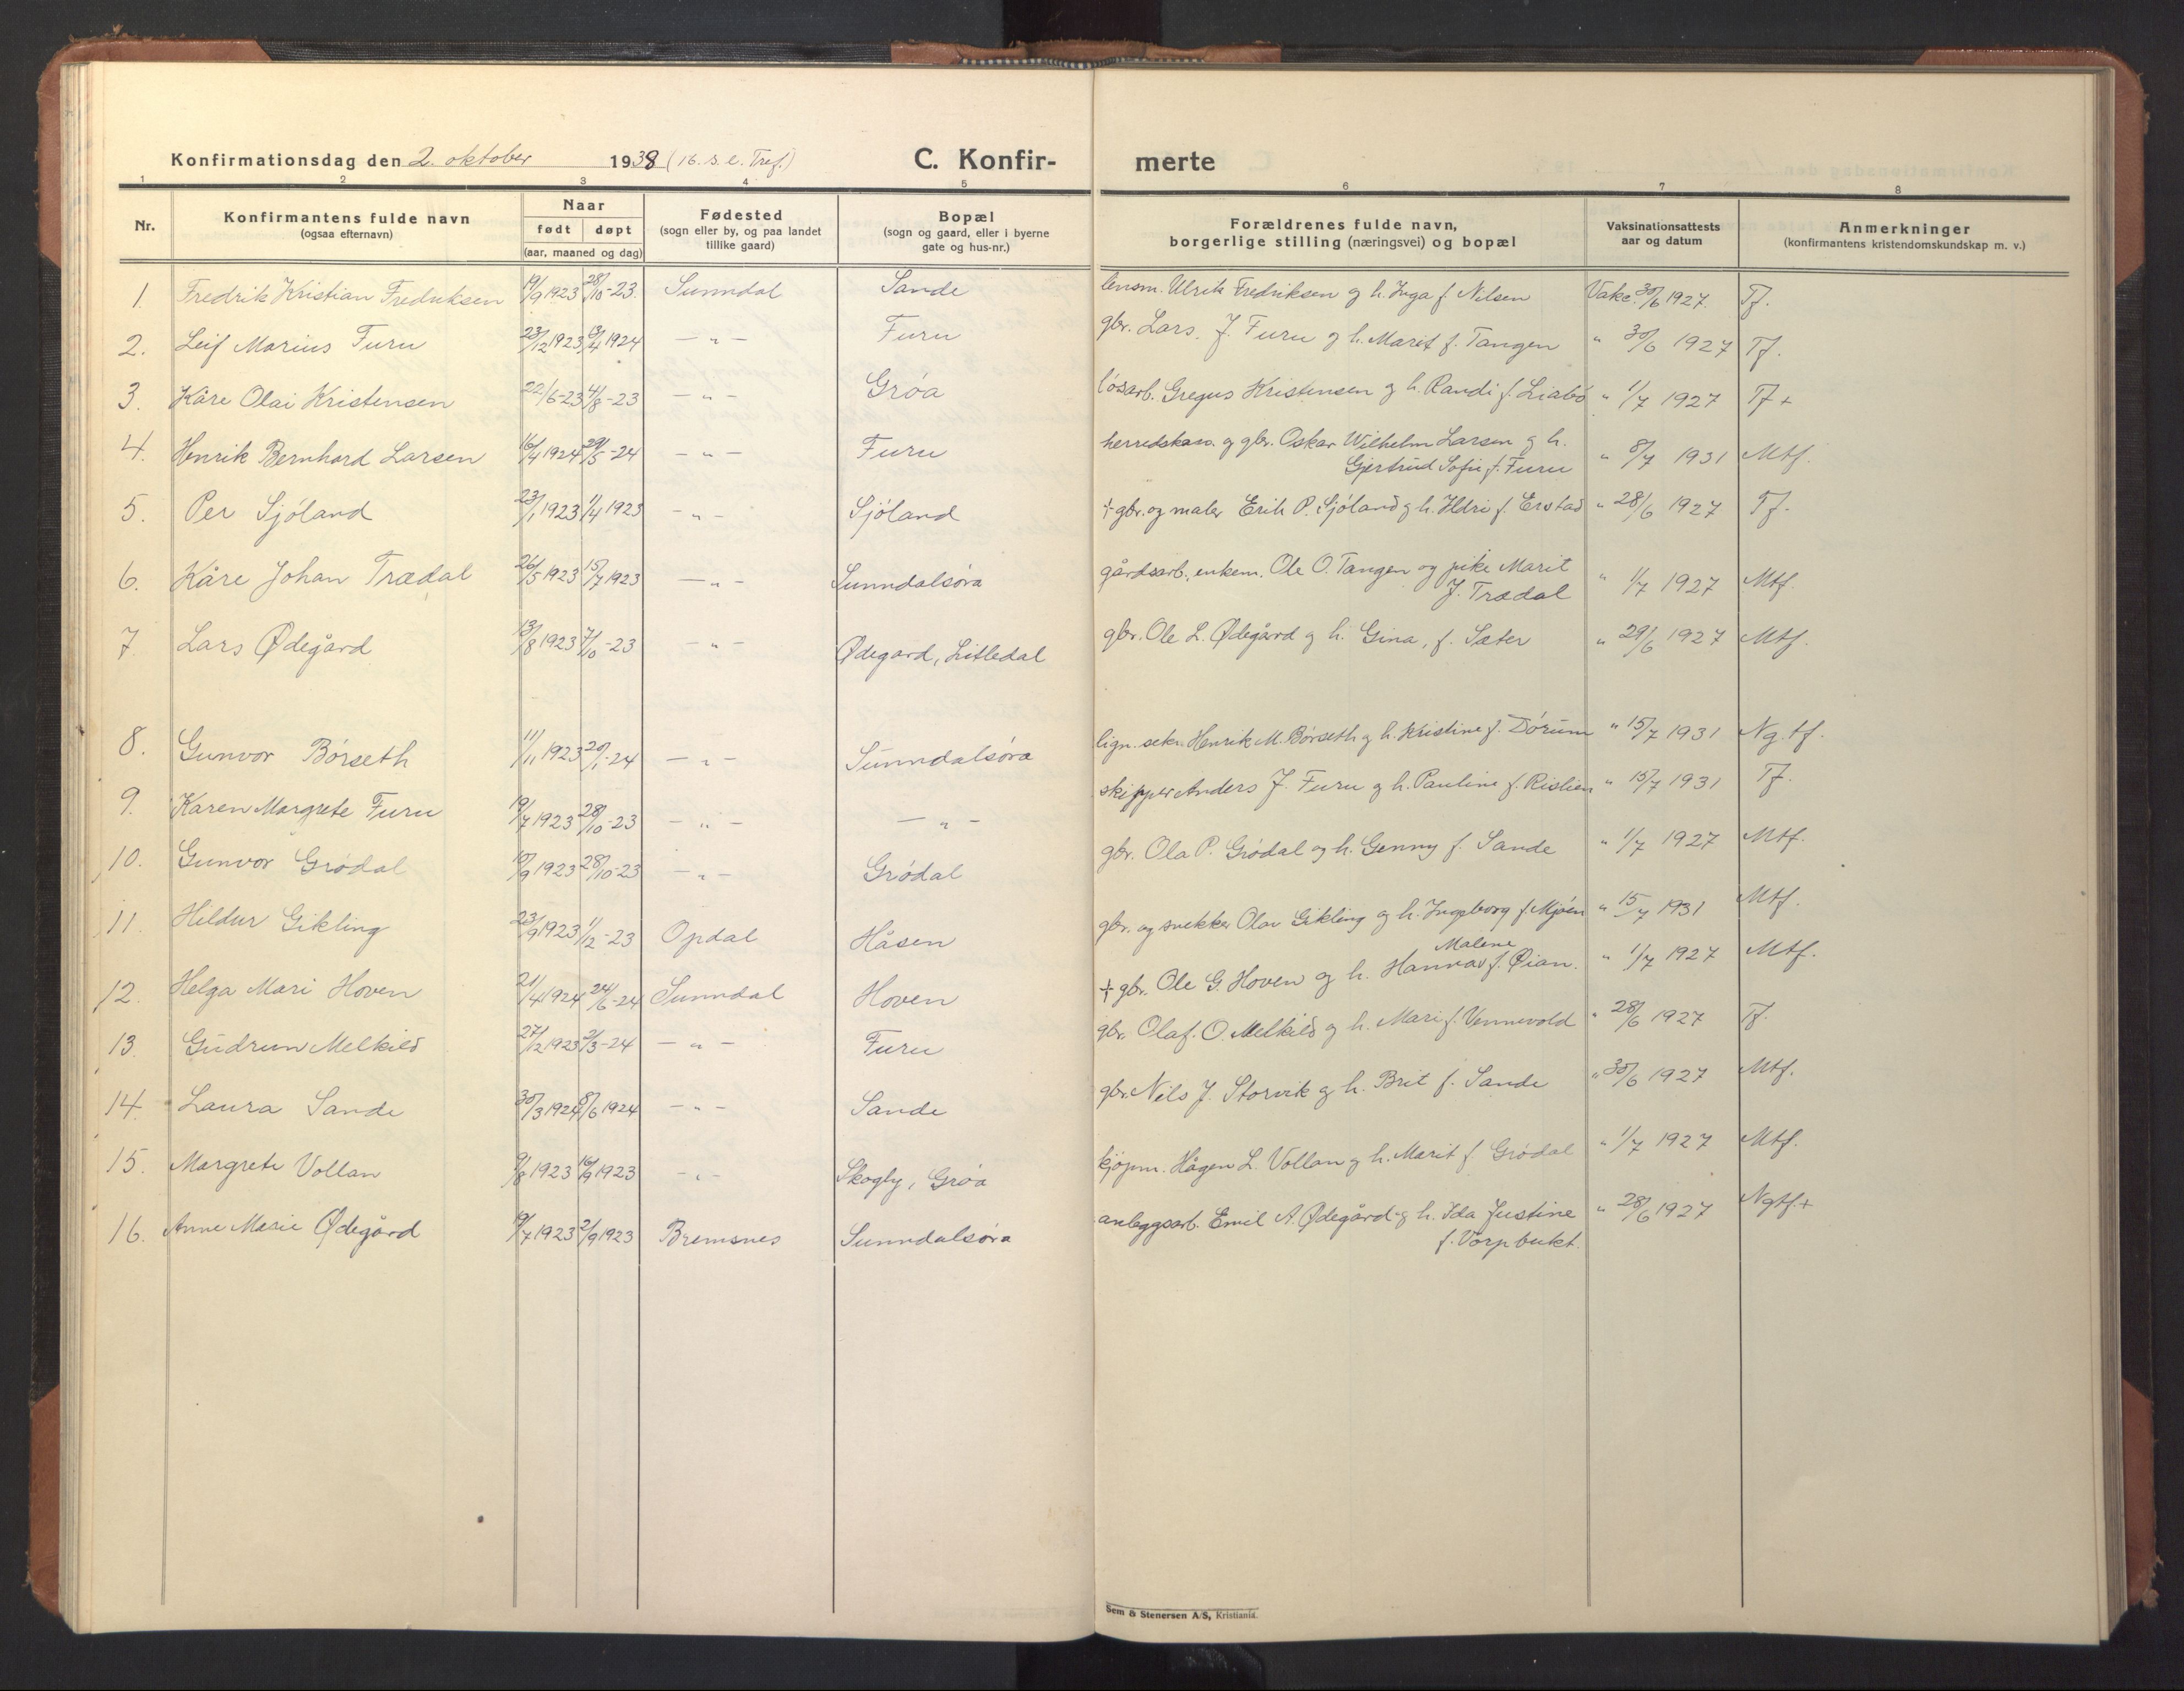 Konfirmationsdag den 2. oktober 1938 (16. s. e. Tref.) C. Konfir- merte
1 2 3 4 5 6 7 8
Nr. Konfirmantens fulde navn (ogsaa efternavn) Naar født døpt (aar, maaned og dag) Fødested (sogn eller by, og paa landet tillike gaard) Bopæl (sogn og gaard, eller i byerne gate og hus-nr.) Forældrenes fulde navn, borgerlige stilling (næringsvei) og bopæl Vaksinationsattests aar og datum Anmerkninger (konfirmantens kristendomskundskap m. v.)
1. Fredrik Kristian Fredriksen 19/9 1923 28/10-23. Sunndal Sande lensm. Ulrik Fredriksen og h. Inga f. Nilsen Vakc. 30/6 1927. Tf.
2. Leif Marius Furu 23/12 1923 13/4 1924 — " — Furu gbr. Lars. J. Furu og h. Marit f. Tangen " 30/6 1927 Tf.
3. Kåre Olai Kristensen 22/6-23 4/8-23 — " — Grøa løsarb. Gregus Kristensen og h. Randi f. Liabø " 1/7 1927 Tf+
4. Henrik Bernhard Larsen 16/4 1924 29/5-24 — " — Furu herredskass. og gbr. Oskar Wilhelm Larsen og h.
Gjertrud Sofie f. Furu " 8/7 1931 Mtf.
5. Per Sjøland 23/1 1923 1/4 1923 — " — Sjøland † gbr. og maler Erik P. Sjøland og h. Ildri f. Erstad " 28/6 1927 Tf.
6. Kåre Johan Trædal 26/5 1923 15/7 1923 — " — Sunndalsøra gårdsarb., enkem. Ole O. Tangen og pike Marit
J. Trædal " 1/7 1927 Mtf.
7. Lars Ødegård 13/8 1923 7/10-23 — " — Ødegard, Litledal gbr. Ole L. Ødegård og h. Gina, f. Sæter " 29/6 1927 Mtf.
8. Gunvor Børseth 11/11 1923 20/1-24 — " — Sunndalsøra lign. sekr. Henrik M. Børseth og h. Kristine f. Dørum " 15/7 1931 Ng. tf.
9. Karen Margrete Furu 19/7 1923 28/10-23 — " — — " — skipper Anders J. Furu og h. Pauline f. Ristien " 15/7 1931 Tf.
10. Gunvor Grødal 10/9 1923 28/10-23 — " — Grødal gbr. Ola P. Grødal og h. Genny f. Sande " 1/7 1927 Mtf.
11. Hildur Gikling 23/9 1923 1/12-23 Opdal Håsen gbr. og snekker Olav Gikling og h. Ingeborg f. Mjøen " 15/7 1931 Mtf.
Malene
12. Helga Mari Hoven 21/4 1924 24/6-24 Sunndal Hoven † gbr. Ole G. Hoven og h. Hanna f. Øian. " 1/7 1927 Mtf.
13. Gudrun Melkild 27/12 1923 2/3-24 — " — Furu gbr. Olaf. O. Melkild og h. Mari f. Vennevold " 28/6 1927 Tf.
14. Laura Sande 30/3 1924 8/6 1924 — " — Sande gbr. Nils J. Storvik og h. Brit f. Sande " 30/6 1927 Mtf.
15. Margrete Vollan 9/8 1923 16/9 1923 — " — Skogly, Grøa kjøpm. Hågen L. Vollan og h. Marit f. Grødal " 1/7 1927 Mtf.
16. Anne Marie Ødegård 19/7 1923 2/9 1923 Bremsnes Sunndalsøra anleggsarb. Emil A. Ødegård og h. Ida Justine
f. Vorpbukt. " 28/6 1927 Ngtf+
Sem & Stenersen A/S, Kristiania.